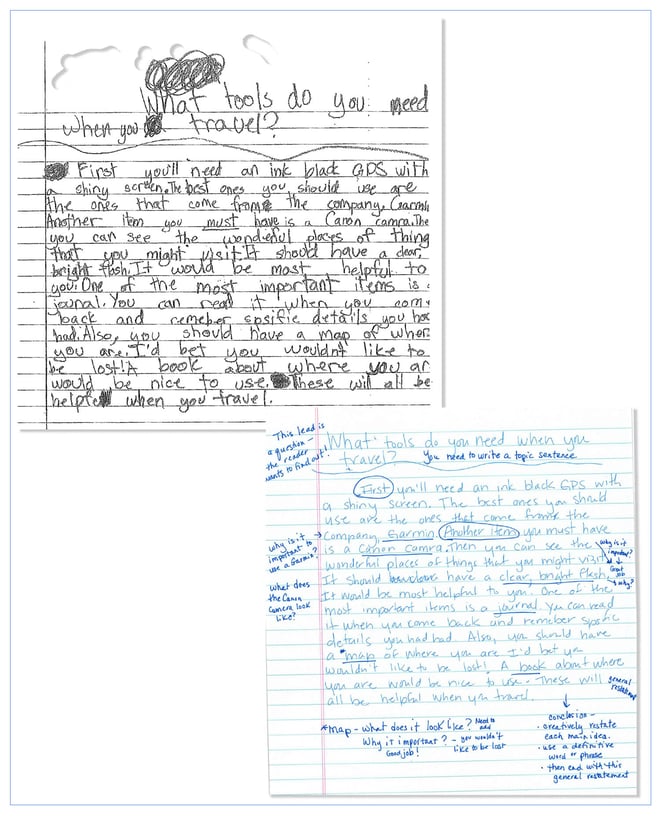 What tools do you need
when you travel?
First you'll need an ink black GPS with
a shiny screen. The best ones you should use are
the ones that come from the company, Garmin
Another item you must have is a Canon camra. The
you can see the wonderful places of thing
that you might visit. It should have a clear,
bright flash. It would be most helpful to
you. One of the most important items is
journal. You can read it when you com
back and remeber spsific details you ha
had. Also, you should have a map of wher
you are. I'd bet you wouldn't like to
be lost! A book about where you ar
would be nice to use. These will all be
helpful when you travel.
This lead is
a question -
the reader
wants to find out!
What tools do you need when you
travel?
You need to write a topic sentence
First you'll need an ink black GPS with
a shiny screen. The best ones you should
use are the ones that come from the
company, Garmin. Another item you must have
is a Canon camra. Then you can see the
wonderful places of things that you might visit.
It should have a clear, bright flash.
It would be most helpful to you. One of the
most important items is a journal. You can read
it when you come back and remeber spsific
details you had had. Also, you should have
a map of where you are I'd bet you
wouldn't like to be lost! A book about where
you are would be nice to use. These will
all be helpful when you travel.
why is it
important to
use a Garmin?
what does
the Canon
camera look
like?
why is it
important?
Great
job
why?
general
restatement
*map - what does it look like? Need to
add
Why is it important? - you wouldn't
like to be lost
Good job!
conclusion -
• creatively restate
each main idea.
• use a definitive
word or phrase
• then end with this
general restatement